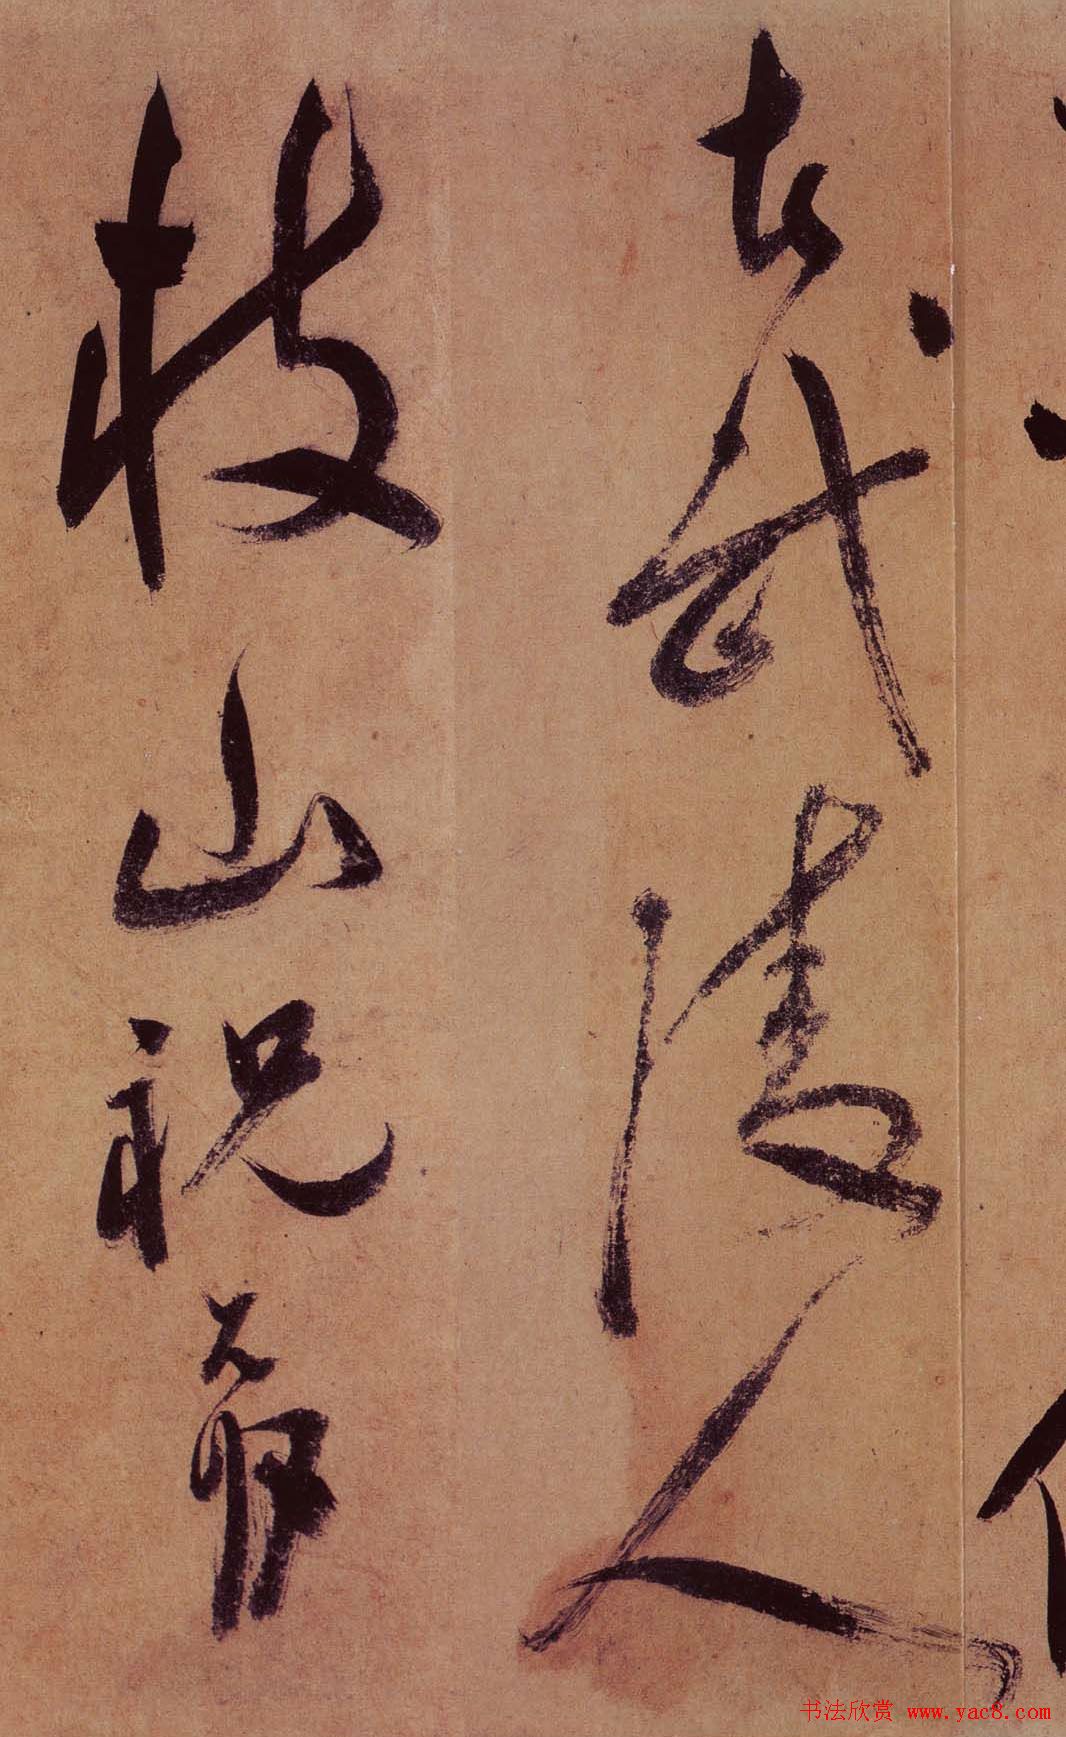 武陵人
枝山祝允明
书法欣赏 www.yac8.com